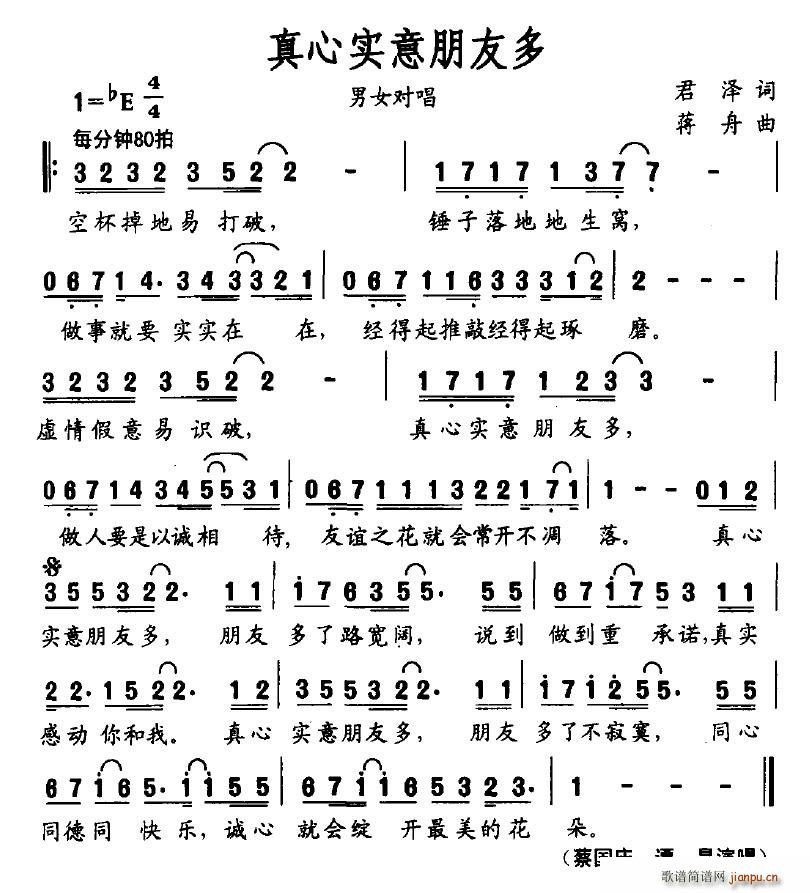 真心实意朋友多
1=♭E 4/4 男女对唱 君泽词
每分钟80拍 蒋舟曲
3 2 3 2 3 5 2 2 - | 1 7 1 7 1 3 7 7 -
空杯掉地易打破， 锤子落地地生窝，
0 6 7 1 4· 3 4 3 3 3 2 1 | 0 6 7 1 1 6 3 3 3 1 2 | 2 - - -
做事就要实实在在， 经得起推敲经得起琢磨。
3 2 3 2 3 5 2 2 - | 1 7 1 7 1 2 3 3 -
虚情假意易识破， 真心实意朋友多，
0 6 7 1 4 3 4 5 5 5 3 1 | 0 6 7 1 1 1 3 2 2 1 7 1 | 1 - - 0 1 2
做人要是以诚相待， 友谊之花就会常开不凋落。 真心
3 5 5 5 3 2 2· 1 1 | 1 7 6 3 5 5· 5 5 | 6 7 1 7 5 3 1 1
实意朋友多， 朋友多了路宽阔， 说到做到重承诺，真实
2 2· 1 5 2 2· 1 2 | 3 5 5 5 3 2 2· 1 1 | 1 7 1 2 5 5· 5 5
感动你和我。 真心实意朋友多， 朋友多了不寂寞， 同心
6 7 1 6 5· 1 1 5 5 | 6 7 1 1 6 5 3 2 3· | 1 - -
同德同快乐，诚心就会绽开最美的花朵。
（蔡国庆
歌谱简谱网
jianpu.cn